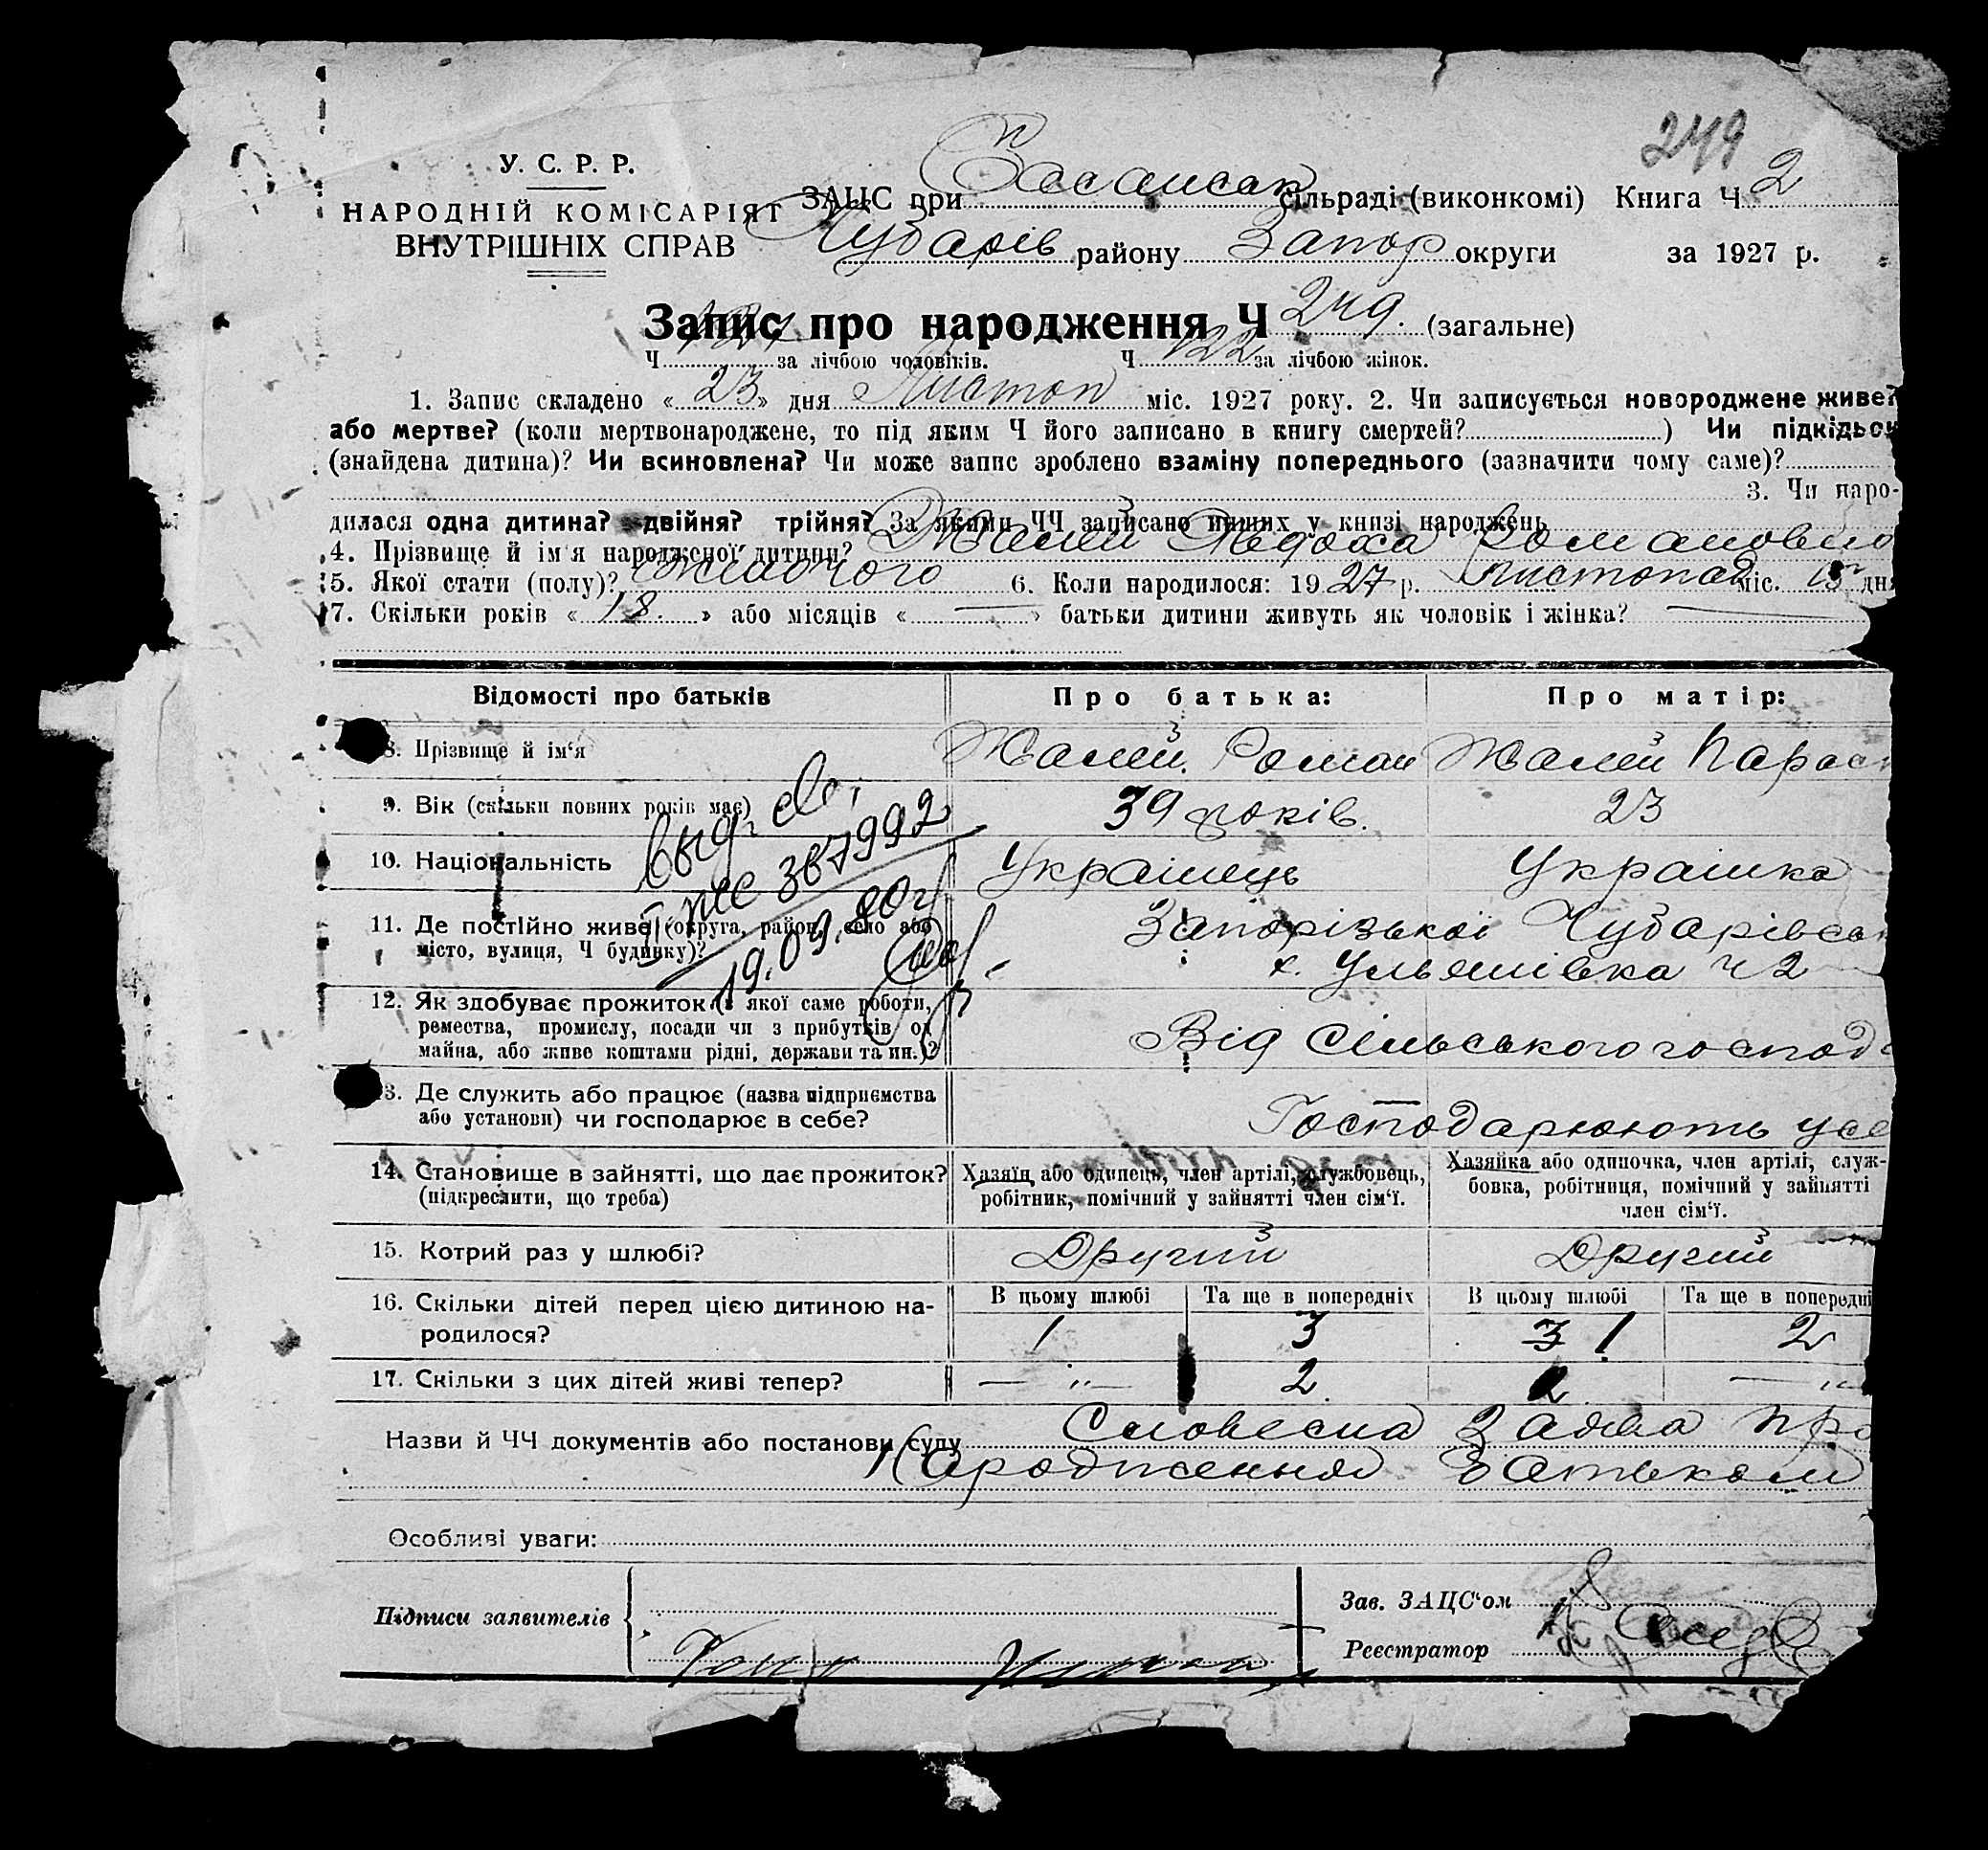 249
У. С. Р. Р.
НАРОДНІЙ КОМІСАРІЯТ
ВНУТРІШНІХ СПРАВ
ЗАЦС при сільраді (виконкомі) Книга Ч 2
Чубарів району Запор округи за 1927 р.
Запис про народження Ч 249. (загальне)
Ч за лічбою чоловіків. Ч 122 за лічбою жінок.
1. Запис складено « 23 » дня Листоп міс. 1927 року. 2. Чи записується новороджене живе?
або мертве? (коли мертвонароджене, то під яким Ч його записано в книгу смертей?) Чи підкідьок
(знайдена дитина)? Чи всиновлена? Чи може запис зроблено взаміну попереднього (зазначити чому саме)?
3. Чи наро-
дилася одна дитина? двійня? трійня? За якими ЧЧ записано инших у книзі народжень
4. Прізвище й ім'я народженої дитини? Жалій Романовна
5. Якої стати (полу)? жіночого 6. Коли народилося: 1927 р. Листопад міс. 15 дня
7. Скільки років « 18. » або місяців « — » батьки дитини живуть як чоловік і жінка? —
Відомості про батьків Про батька: Про матір:
8. Прізвище й ім‘я Жалій Роман Жалій Параск
9. Вік (скільки повних років має) 39 років. 23
10. Національність Українець Українка
выд. св.
387992
19.09.80г
11. Де постійно живе (округа, район, село або
місто, вулиця, Ч будинку)?
Запорізької Чубарівськ
х. Ульянівка ч 2
12. Як здобуває прожиток (з якої саме роботи,
ремества, промислу, посади чи з прибутків од
майна, або живе коштами рідні, держави та ин.)?
Від сільського господ
13. Де служить або працює (назва підприємства
або установи) чи господарює в себе?
Господарюють у се
14. Становище в зайнятті, що дає прожиток?
(підкреслити, що треба)
Хазяїн або одинець, член артілі, службовець,
робітник, помічний у зайнятті член сім‘ї.
Хазяйка або одиночка, член артілі, служ-
бовка, робітниця, помічний у зайнятті
член сім‘ї.
15. Котрий раз у шлюбі? Другий Другий
16. Скільки дітей перед цією дитиною на-
родилося?
В цьому шлюбі Та ще в попередніх В цьому шлюбі Та ще в попередні
1 3 3 1 2
17. Скільки з цих дітей живі тепер? — „ — 2 2 — „
Назви й ЧЧ документів або постанови суду Словесна Заява про
Народження батьком
Особливі уваги:
Підписи заявителів
Зав. ЗАЦС‘ом
Реєстратор